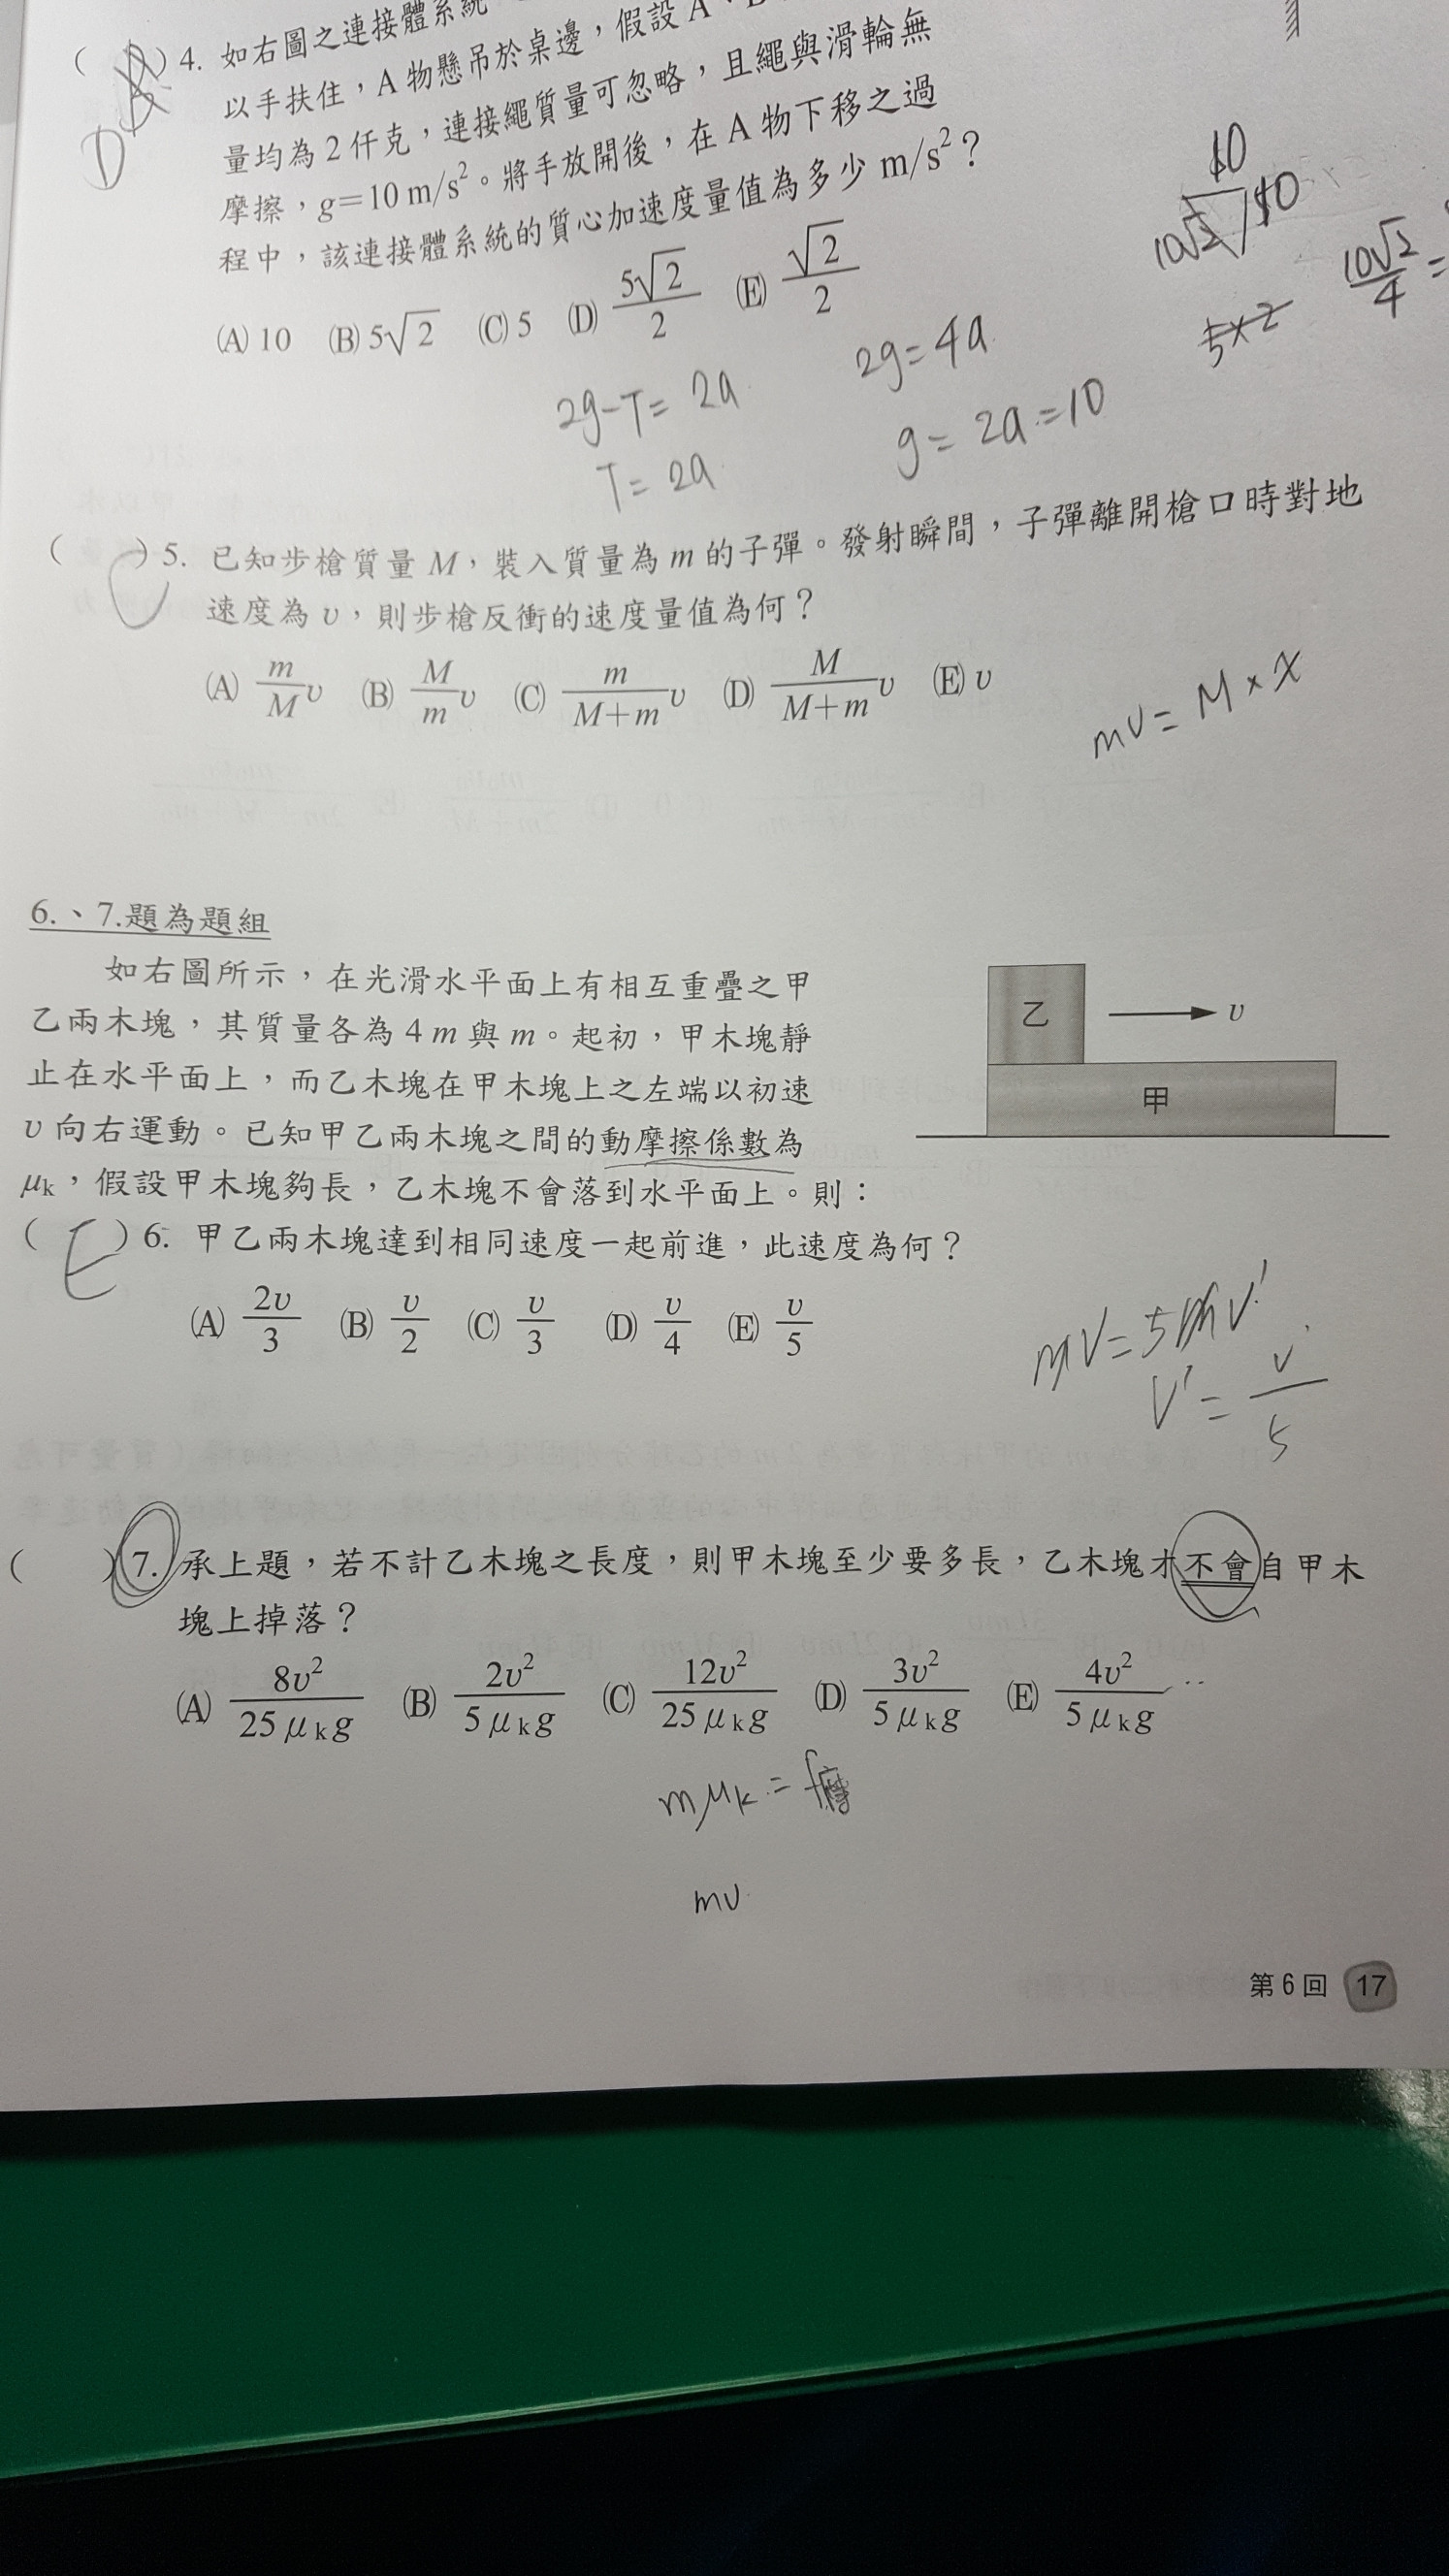 ( D ) 4. 如右圖之連接體系統
以手扶住，A 物懸吊於桌邊，假設 A、
量均為 2 仟克，連接繩質量可忽略，且繩與滑輪無
摩擦，g=10 m/s²。將手放開後，在 A 物下移之過
程中，該連接體系統的質心加速度量值為多少 m/s²？
(A) 10 (B) 5√2 (C) 5 (D) 5√2/2 (E) √2/2
10
10√2 10
10√2/4 =
5×2
2g-T= 2a
T= 2a
2g= 4a
g= 2a=10
( ) 5. 已知步槍質量 M，裝入質量為 m 的子彈。發射瞬間，子彈離開槍口時對地
速度為 υ，則步槍反衝的速度量值為何？
(A) m/M υ (B) M/m υ (C) m/(M+m) υ (D) M/(M+m) υ (E) υ
mv= M × x
6.、7.題為題組
如右圖所示，在光滑水平面上有相互重疊之甲
乙兩木塊，其質量各為 4 m 與 m。起初，甲木塊靜
止在水平面上，而乙木塊在甲木塊上之左端以初速
υ 向右運動。已知甲乙兩木塊之間的動摩擦係數為
μk，假設甲木塊夠長，乙木塊不會落到水平面上。則：
乙 υ
甲
( E ) 6. 甲乙兩木塊達到相同速度一起前進，此速度為何？
(A) 2υ/3 (B) υ/2 (C) υ/3 (D) υ/4 (E) υ/5
mv= 5mv'
v'= v/5
( ) 7. 承上題，若不計乙木塊之長度，則甲木塊至少要多長，乙木塊才不會自甲木
塊上掉落？
(A) 8υ²/25μkg (B) 2υ²/5μkg (C) 12υ²/25μkg (D) 3υ²/5μkg (E) 4υ²/5μkg
mμk = f摩
mv
第 6 回 17